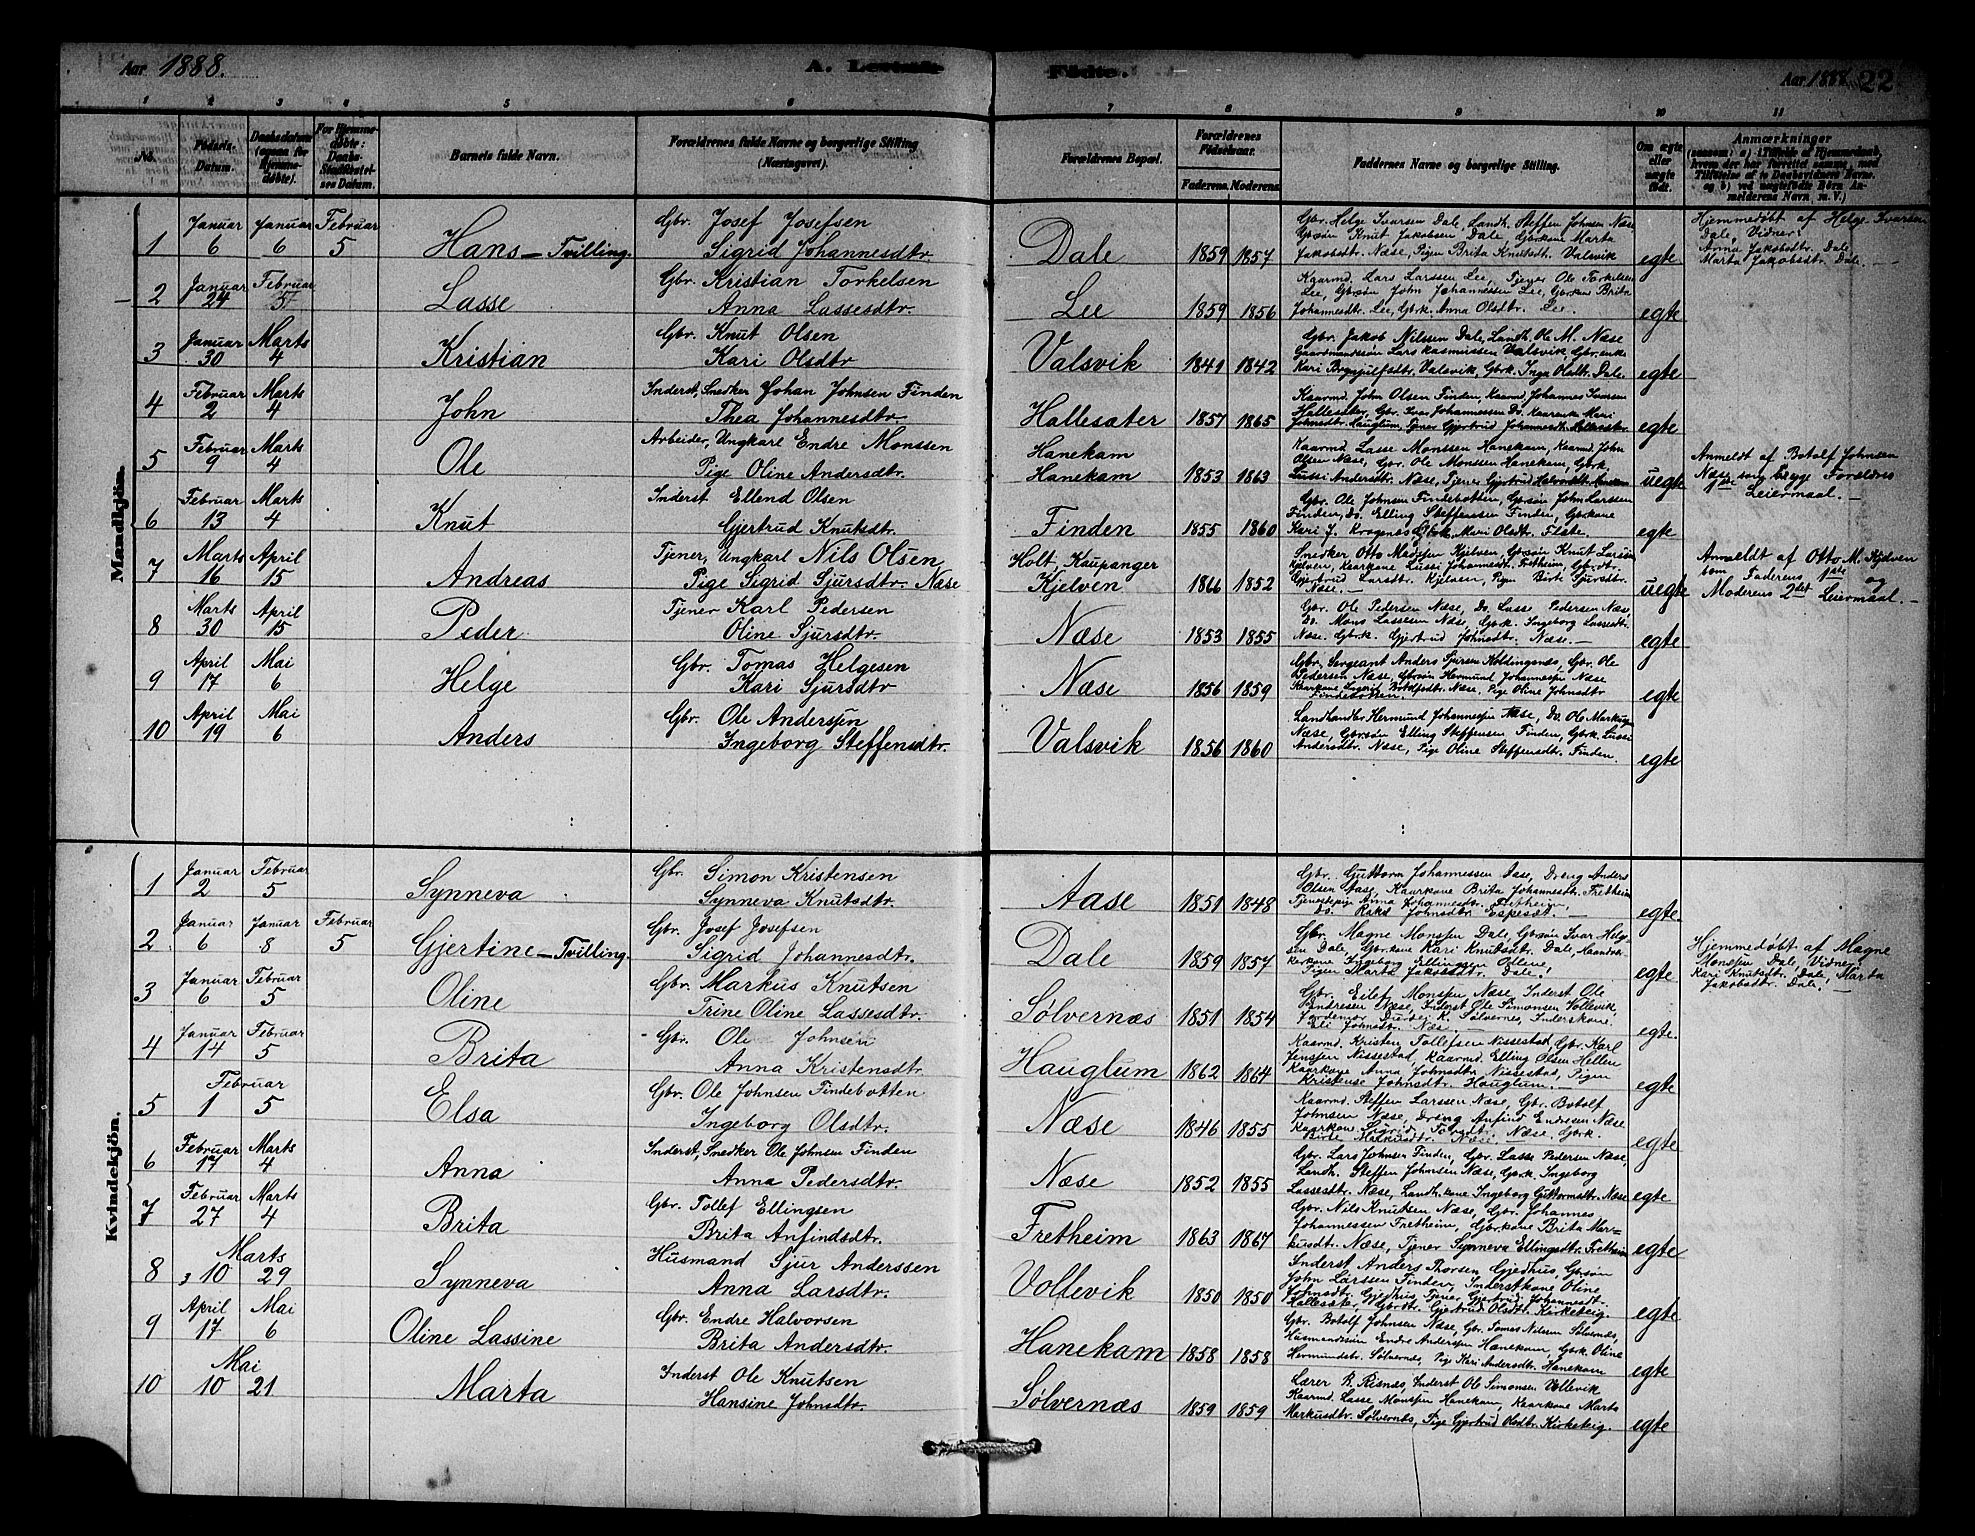 Aar 1888.
A. Levende
Fødte.
Aar 1888. 22
1 2 3 4 5 6 7 8 9 10 11
No.
Fødsels-Datum.
Daabsdatum (ogsaa for Hjemmedøbte).
For Hjemmedøbte: Daabs-Stadfæstelses Datum.
Barnets fulde Navn.
Forældrenes fulde Navne og borgerlige Stilling (Næringsvei).
Forældrenes Bopæl.
Forældrenes Fødselsaar.
Faderens. Moderens.
Faddernes Navne og borgerlige Stilling.
Om ægte eller uægte født.
Anmærkninger
Mandkjön.
1 Januar 6 Januar 6 Februar 5 Hans - Tvilling. Gbr. Josef Josefsen
Sigrid Johannesdtr. Dale 1859 1857 egte
Gbr. Helge Ivarsen Dale, Landh. Steffen Johnsen Næse
Gbrsøn Knut Jakobsen Dale, Gbrkone Marta
Jakobsdtr. Næse, Pigen Brita Knutsdtr. Valsvik
Hjemmedøbt af Helge Ivarsen
Dale, Vidner:
Anna Jakobsdtr. Dale
Marta Jakobsdtr. Dale.
2 Januar 24 Februar 5 Lasse Gbr. Kristian Torkelsen
Anna Lassesdtr. Lee 1859 1856 egte
Kaarmd. Lars Larssen Lee, Tjener Ole Torkelsen
Lee, Gbrsøn John Johannessen Lee, Gbrkone Brita
Johannesdtr. Lee, Gbrk. Anna Olsdtr. Lee.
3 Januar 30 Marts 4 Kristian Gbr. Knut Olsen
Kari Olsdtr Valsvik 1841 1842 egte
Gbr. Jakob Nilssen Dale, Landh. Ole M. Næse
Gaardmandssøn Lars Rasmussen Valsvik, Gbr.enke
Kari Valsvik, Gbrk. Inga Olsdtr. Dale.
4 Februar 2 Marts 4 John Inderst, Snedker Johan Johnsen Finden
Thea Johannesdtr. Hallesæter 1857 1865 egte
Kaarmd. John Olsen Finden, Kaarmd. Johannes Ivarsen
Hallesæter, Gbr. Ivar Johannessen Do. Kaarenke Mari
Johnsdtr. Hauglum, Tjener Gjertrud Johannesdtr. Hallesæter
5 Februar 9 Marts 4 Ole Arbeider, Ungkarl Endre Monssen Hanekam
Pige Oline Andersdtr. Hanekam 1853 1863 uegte
Kaarmd. Lasse Monssen Hanekam, Kaarmd. John
Olsen Næse, Gbr. Ole Monssen Hanekam, Gbrk.
Lussi Andersdtr. Næse, Tjener Gjertrud
Anmeldt af Botolf Johnsen
Næse som begge Forældres
1ste Leiermaal. -
6 Februar 13 Marts 4 Knut Inderst Ellend Olsen
Gjertrud Knutsdtr. Finden 1855 1860 egte
Gbr. Ole Johnsen Findebotten, Gbrsøn John Larssen
Finden, Do. Elling Steffensen Finden, Gbrkone
Kari J. Krogenes, Gbrk. Mari Olsdtr.
7 Marts 16 April 15 Andreas Tjener, Ungkarl Nils Olsen, Holt, Kaupanger
Pige Sigrid Sjursdtr. Næse Kjelven 1866 1852 uegte
Snedker Otto Madsen Kjelven, Gbrsøn Knut Larsen
Kjelven, Kaarkone Lussi Johannesdtr. Fretheim, Gbrdtr.
Gjertrud Larsdtr. Kjelven, Pigen Birte Sjursdtr.
Næse. -
Anmeldt af Otto M. Kjelven
som Faderens 1ste og
Moderens 2det Leiermaal. -
8 Marts 30 April 15 Peder Tjener Karl Pedersen
Oline Sjursdtr. Næse 1853 1855 egte
Gbr. Ole Pedersen Næse, Do. Lasse Pedersen Næse
Do. Mons Lassesen Næse, Gbrk. Ingeborg Lassesdtr.
Næse. Gbrk. Gjertrud Johnsdtr. Næse. -
9 April 17 Mai 6 Helge Gbr. Tomas Helgesen
Kari Sjursdtr Næse 1856 1859 egte
Gbr, Sergeant Anders Sjursen Koldingsnes, Gbr. Ole
Pedersen Næse, Gbrsøn Hermund Johannessen Næse
Kaarkone Ingerid Botolfsdtr. Næse, Pige Oline Johnsdtr
Findebotten.
10 April 19 Mai 6 Anders Gbr. Ole Anderssen
Ingeborg Steffensdtr. Valsvik 1856 1860 egte
Landhandler Hermund Johannessen Næse, Do. Ole Markusen
Næse, Gbrsøn Elling Steffensen Finden, Gbrk. Lussi
Andersdtr. Næse, Pige Oline Steffensdtr. Finden.
Kvindekjön.
1 Januar 2 Februar 5 Synneva Gbr. Simon Kristensen
Synneva Knutsdtr. Aase 1851 1848 egte.
Gbr. Guttorm Johannessen Aase, Dreng Anders
Olsen Aase, Kaarkone Brita Johannesdtr. Fretheim
Tjenestepige Anna Johannesdtr. Fretheim,
Do. Johnsdtr. Espesæt. -
2 Januar 6 Januar 8 Februar 5 Gjertine - Tvilling. Gbr. Josef Josefsen
Sigrid Johannesdtr. Dale 1859 1857 egte
Gbr. Magne Monssen Dale, Gbrsøn Ivar Helge-
sen Dale, Gbrkone Kari Knutsdtr. Dale,
Ingeborg Ellingsen
Pigen Marta Jakobsdtr. Dale.
Hjemmedøbt af Magne
Monssen Dale, Vidner:
Kari Knutsdtr. Dale, Marta
Jakobsdtr. Dale. -
3 Januar 6 Februar 5 Oline Gbr. Markus Knutsen
Trine Oline Lassesdtr. Sølvernæs 1851 1854 egte.
Gbr. Eilef Monssen Næse, Inderst Ole
Andresen Næse, Inderst Ole Simonsen Vollevik,
Jordemor Durdei K. Sølvernes, Inderstkone
Eli Johnsdtr. Næse. -
4 Januar 14 Februar 5 Brita Gbr. Ole Johnsen
Anna Kristensdtr. Hauglum 1862 1864 egte
Kaarmd. Kristen Tollefsen Nissestad, Gbr. Karl
Jenssen Nissestad, Kaarmd. Elling Olsen Hellen
Kaarkone Anna Johnsdtr. Nissestad, Pigen
Kristense Johnsdtr. Hauglum.
5 Februar 1 5 Elsa Gbr. Ole Johnsen Findebotten
Ingeborg Olsdtr. Næse 1846 1855 egte
Kaarmd. Steffen Larssen Næse, Gbr. Botolf
Johnsen Næse, Dreng Anfind Endresen Næse
Kaarkone Sigrid Næse, Gbrk.
Birte Markusdtr. Næse
6 Februar 17 Marts 4 Anna Inderst, Snedker Ole Johnsen Finden
Anna Pedersdtr. Næse 1852 1855 egte
Gbr. Lars Johnsen Finden, Gbr. Lasse Pedersen Næse,
Landh. Steffen Johnsen Næse, Gbrk. Ingeborg
Lassesdtr. Næse, Landh.kone Ingeborg Guttormsdtr. Næse
7 Februar 27 Marts 4 Brita Gbr. Tollef Ellingsen
Brita Anfindsdtr. Fretheim 1863 1867 egte
Gbr. Nils Knutsen Næse, Gbr. Johannes
Johannessen Fretheim, Gbrkone Brita Mar-
kusdtr. Næse, Tjener Synneva Ellingsdtr. Fretheim
8 Marts 10 29 Synneva Husmand Sjur Anderssen
Anna Larsdtr. Vollevik 1850 1850 egte
Inderst Anders Thorsen Gjedhus, Gbrsøn
John Larssen Finden, Inderstkone Oline
Johnsdtr. Gjedhus, Tjener Gjertrud Johannesdt.
Hallesæter, Gbrdtr. Gjertrud Olsdtr. Kirketeig.
9 April 17 Mai 6 Oline Lassine Gbr. Endre Halvorsen
Brita Andersdtr. Hanekam 1858 1858 egte
Gbr. Botolf Johnsen Næse, Gbr. Tomas Nilssen Sølvernæs,
Husmandssøn Endre Anderssen Hanekam, Gbrk. Oline
Hermundsdtr. Sølvernes, Pige Kari Andersdtr. Hanekam
10 Mai 10 21 Marta Inderst Ole Knutsen
Hansine Johnsdtr. Sølvernæs 1859 1859 egte
Lærer R. Risnæs, Inderst Ole Simonsen Vollevik
Kaarmd. Lasse Monssen Hanekam, Kaarkone Marta
Markusdtr. Sølvernes, Pige Gjertrud Olsdtr. Kirketeig.